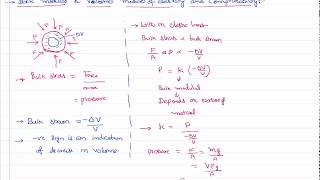 → Bulk modulus & volume modulus of elasticity and compressibility:
F F F F F F
ΔV
→ Bulk stress = Force
area
= pressure
→ Bulk strain = -ΔV
V
→ -ve sign is an indication
of decrease in volume
→ within elastic limit
Bulk stress ∝ bulk strain
F
A or P ∝ -ΔV
V
P = K (-ΔV
V)
Bulk modulus
Depends on nature of
material
→ K = P
-ΔV/V
pressure = F
A = mg
A
= Vρg
A